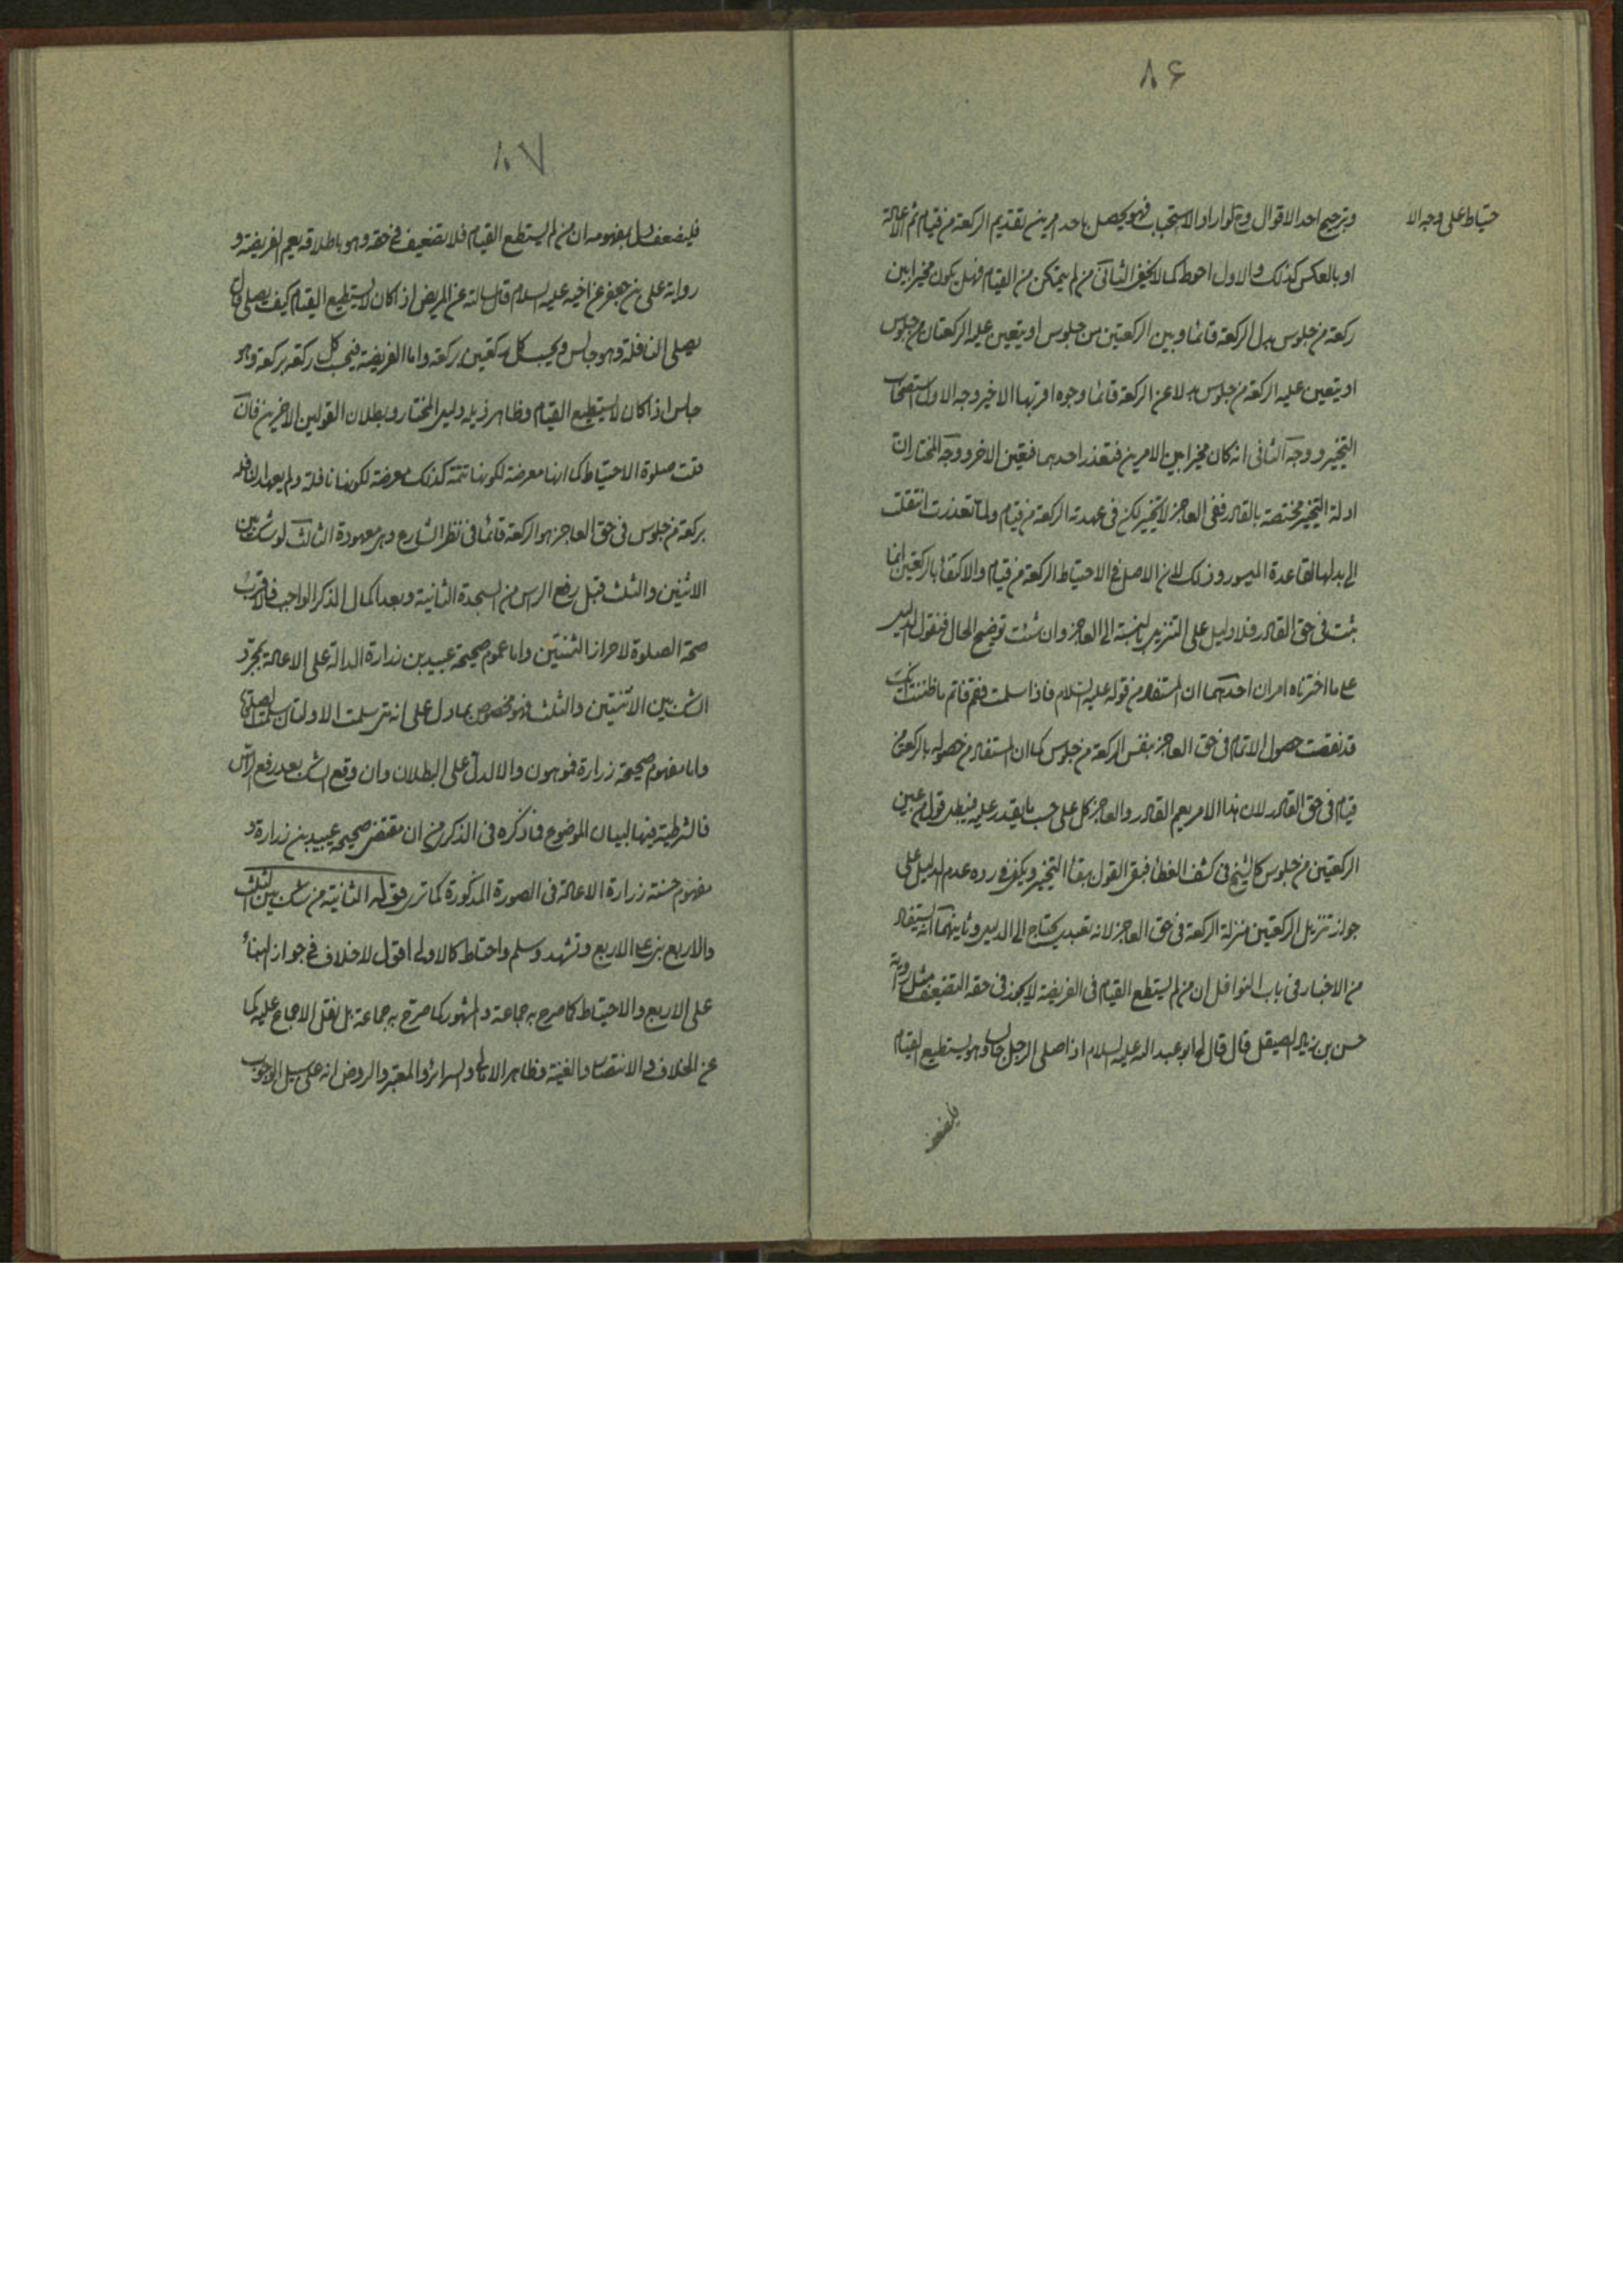 ۸۶
حتیاط علی وجه الا
وترجیح احد الاقوال وح لو اراد الاستحباب فهو یحصل باحد امرین تقدیم الرکعة من قیام ثم الاعادة
او بالعکس کذلک والاول احوط کما لا یخفی الثانی من لم یتمکن من القیام فهل یکون مخیرا بین
رکعة من جلوس بدل الرکعة قائما وبین الرکعتین من جلوس او یتعین علیه الرکعتان من جلوس
او یتعین علیه الرکعة من جلوس بدلا عن الرکعة قائما وجوه اقربها الاخیر وجه الاول استصحاب
التخییر ووجه الثانی انه کان مخیرا بین الامرین فتعذر احدهما فیتعین الاخر ووجه المختار ان
ادلة التخییر مختصة بالقادر ففی العاجز لا تخییر لکن فی عهدته الرکعة من قیام ولما تعذرت انتقلت
الی بدلها لقاعدة المیسور وذلک لان الاصل فی الاحتیاط الرکعة من قیام والاکتفاء بالرکعتین انما
یثبت فی حق القادر فلا دلیل علی التنزیل بالنسبة الی العاجز وان شئت توضیح الحال فنقول الدلیل
علی ما اخترناه امران احدهما ان المستفاد من قوله علیه السلام فاذا سلمت فقم فاتم ما ظننت انک
قد نقصت حصول الاتمام فی حق العاجز بنفس الرکعة من جلوس کما ان المستفاد من حصوله بالرکعة من
قیام فی حق القادر لان هذا الامر یعم القادر والعاجز کل علی حسب ما یقدر علیه فیبطل قول من عین
الرکعتین من جلوس کالشیخ فی کشف الغطاء فبقی القول ببقاء التخییر ویکفی فی رده عدم الدلیل علی
جواز تنزیل الرکعتین منزلة الرکعة فی حق العاجز لانه تعبد یحتاج الی الدلیل وثانیهما انه یستفاد
من الاخبار فی باب النوافل ان من لم یستطع القیام فی الفریضة لا یجز فی حقه التضعیف مثل روایة
حسن بن زیاد الصیقل قال قال لی ابو عبد الله علیه السلام اذا صلی الرجل جالسا وهو یستطیع القیام
فلیضعف
۸۷
فلیضعف دل بمفهومه ان من لم یستطع القیام فلا تضعیف فی حقه وهو باطلاقه یعم الفریضة و
روایة علی بن جعفر عن اخیه علیه السلام قال سالته عن المریض اذا کان لا یستطیع القیام کیف یصلی قال
یصلی النافلة وهو جالس ویحسب کل رکعتین برکعة واما الفریضة فیحسب کل رکعة برکعة وهو
جالس اذا کان لا یستطیع القیام وظاهر ذیله دلیل المختار وبطلان القولین الاخرین فان
قلت صلوة الاحتیاط کما انها معرضة لکونها تتمة کذلک معرضة لکونها نافلة ولم یعهد النافلة
برکعة من جلوس فی حق العاجز هو الرکعة قائما فی نظر الشارع وهی معهودة الثالث لو شک بین
الاثنین والثلث قبل رفع الراس من السجدة الثانیة وبعد اکمال الذکر الواجب فالاقرب
صحة الصلوة لاحراز الثنتین واما عموم صحیحة عبید بن زرارة الدالة علی الاعادة بمجرد
الشک بین الاثنتین والثلث فهو مخصوص بما دل علی انه متی سلمت الاولتان سلمت الصلوة
واما مفهوم صحیحة زرارة فموهون والا لدل علی البطلان وان وقع الشک بعد رفع الراس
فالشرطیة فیها لبیان الموضوع فما ذکره فی الذکری من ان مقتضی صحیحة عبید بن زرارة و
مفهوم حسنة زرارة الاعادة فی الصورة المذکورة کما تری قوله الثانیة من شک بین الثلث
والاربع بنی علی الاربع وتشهد وسلم واحتاط کالاولی اقول لا خلاف فی جواز البناء
علی الاربع والاحتیاط کما صرح به جماعة والمشهور کما صرح به جماعة بل نقل الاجماع علیه کما
عن الخلاف والانتصار والغنیة وظاهر الامالی والسرائر والمعتبر والروض انه علی سبیل الوجوب